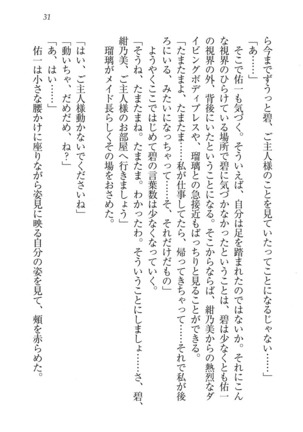 31
ら今までずうっと……ご主人様のことを見ていたってことになるじゃない！」
「あ……」
そこで佑一も気づく。そういえば、自分は足を踏まれたのではないか。それにこん
な視界のひらけている場所で碧に気づかなかったということは、碧は少なくとも佑一
の視界の外、背後にいたということになる。そこからならば、紺乃美からの熱烈なダ
イビングボディプレスや、瑠璃との急接近もばっちりと見ることができる。
「たまたまよ、たまたま……私が仕事してたら、帰ってきちゃって……それで私が後
ろにいる、みたいになっちゃって……そ、それだけだもの」
ようやくここではじめて碧の言葉数は少なくなっていく。
「そうね、たまたま、ね。たまたま。わかったわ。そういうことにしましょ……さ、碧、
紺乃美、ご主人様のお部屋へ行きましょう」
瑠璃がメイド長らしくその場をおさめた。
「はい、ご主人様動かないでくださいね」
「動いちゃ、だめだめ、ね？」
「あ、はい……」
佑一は小さな腰かけに座りながら姿見に映る自分の姿を見て、頬を赤らめた。